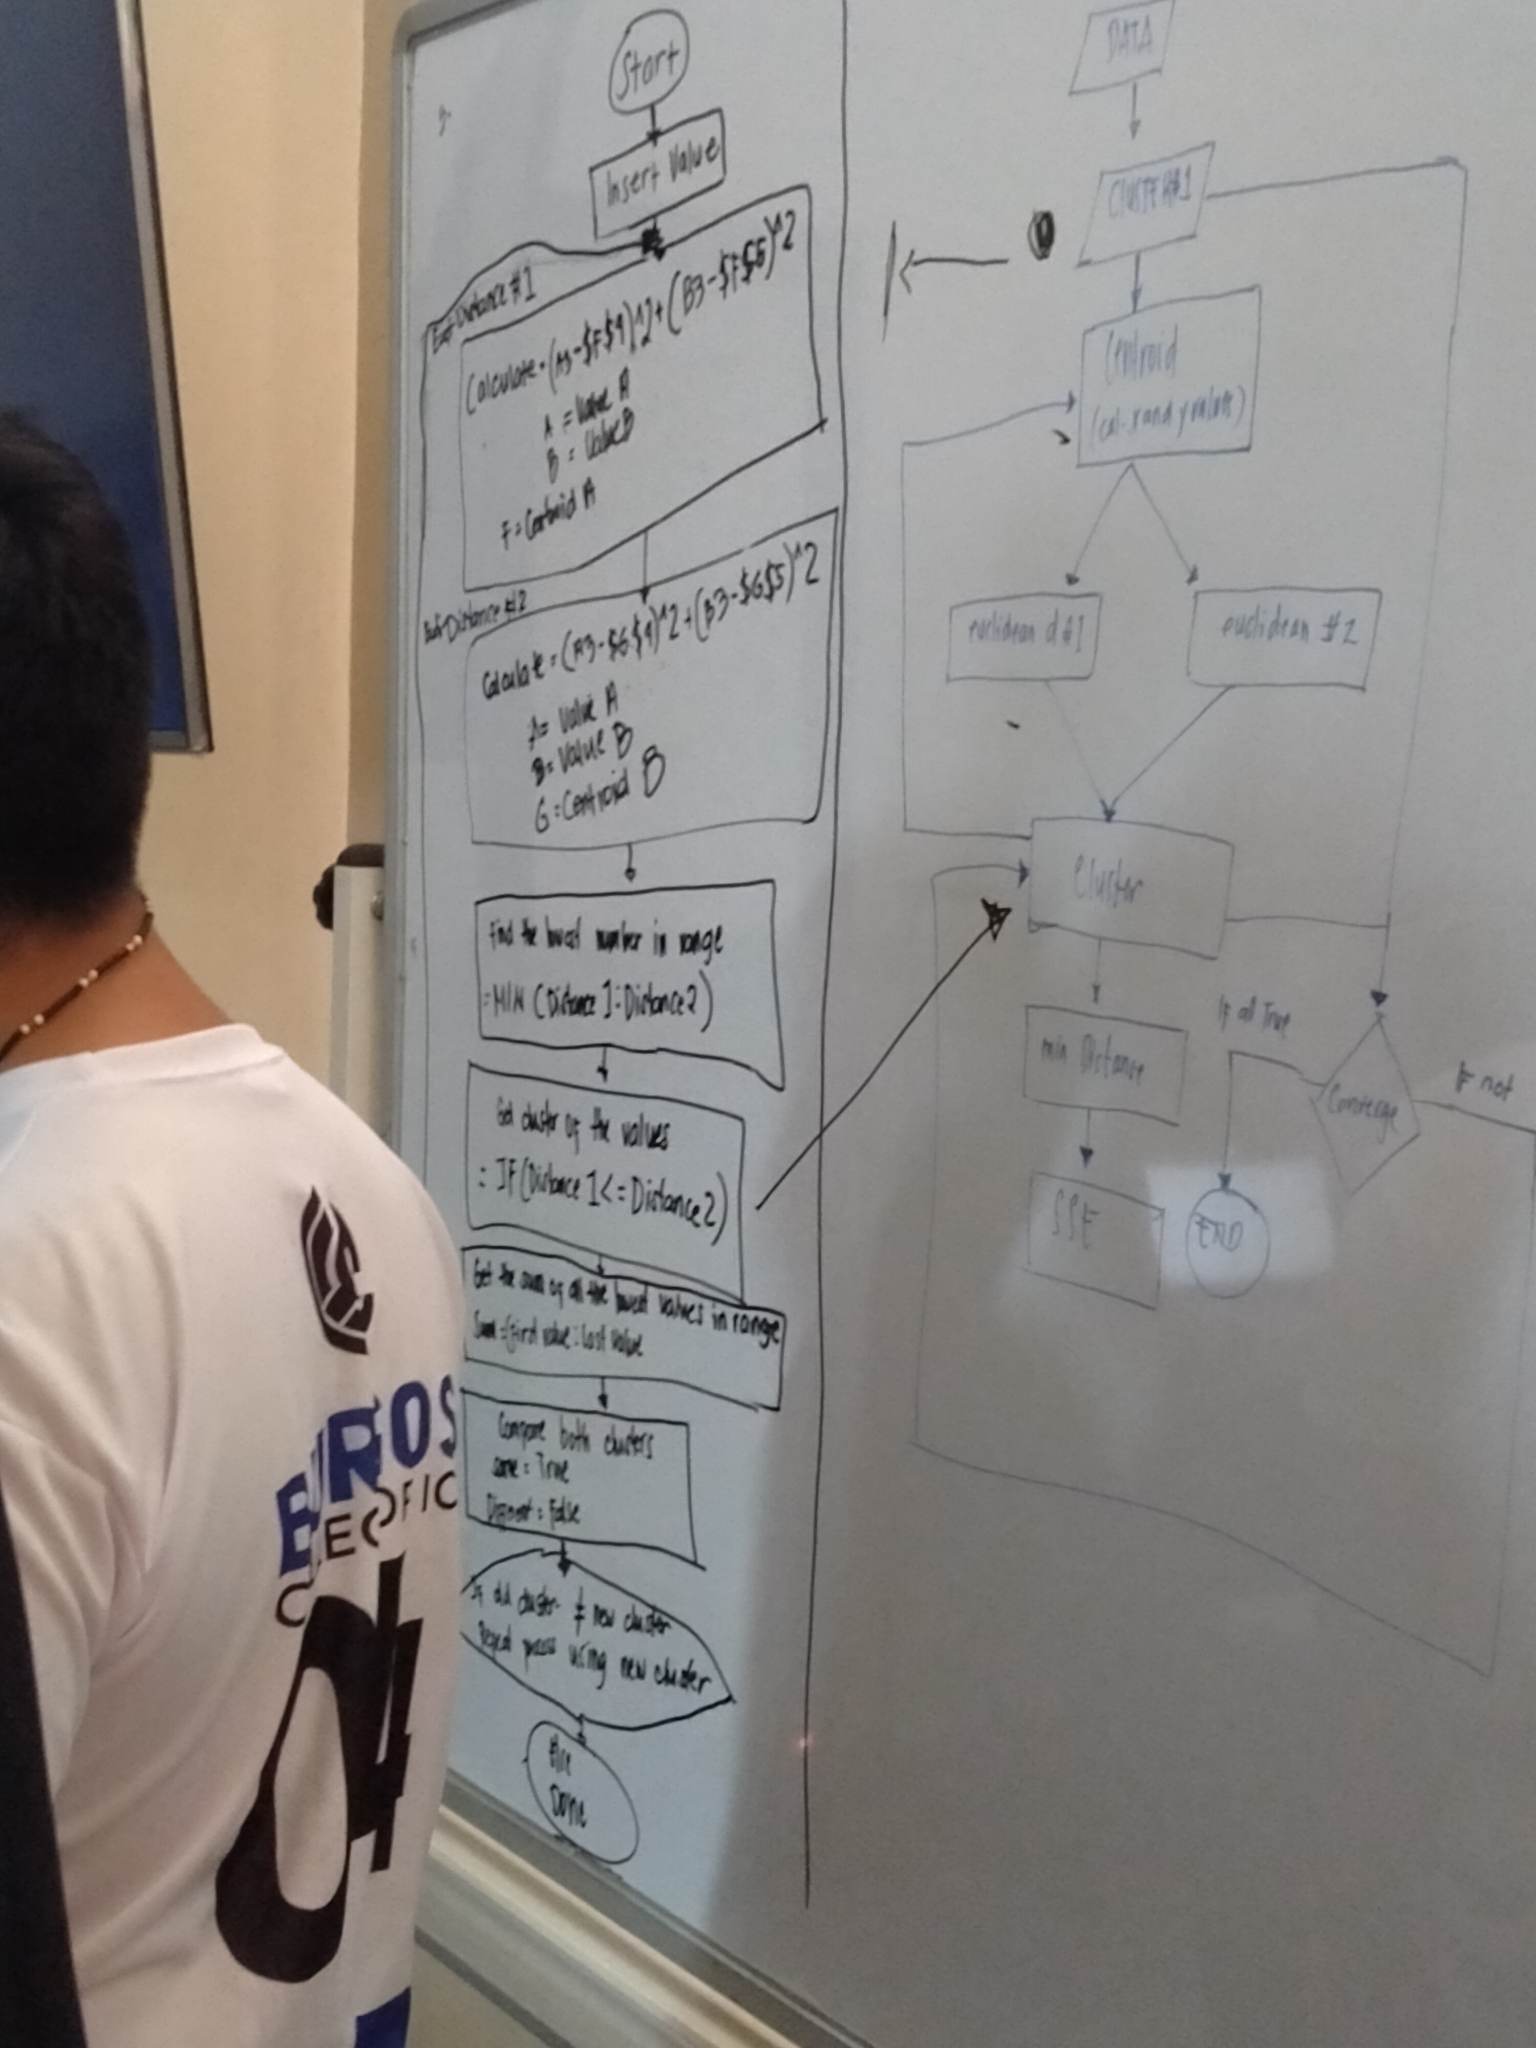 Start
Insert Value
Distance #1
Calculate = (A3-$F$4)^2+(B3-$F$5)^2
A = Value A
B = Value B
F = Centroid A
Distance #2
Calculate = (A3-$G$4)^2+(B3-$G$5)^2
A = Value A
B = Value B
G = Centroid B
Find the lowest number in range
=MIN (Distance 1:Distance 2)
Get cluster of the values
= IF(Distance 1<=Distance 2)
Get the sum of all the lowest values in range
Sum =(first value:Last value
Compare both clusters
same = True
Different = False
If old cluster ≠ new cluster
Repeat process using new cluster
Else
Done
DATA
CLUSTER#1
Centroid
(cal. x and y values)
euclidean d#1
euclidean #2
Cluster
min Distance
SSE
If all True
END
Converge
If not